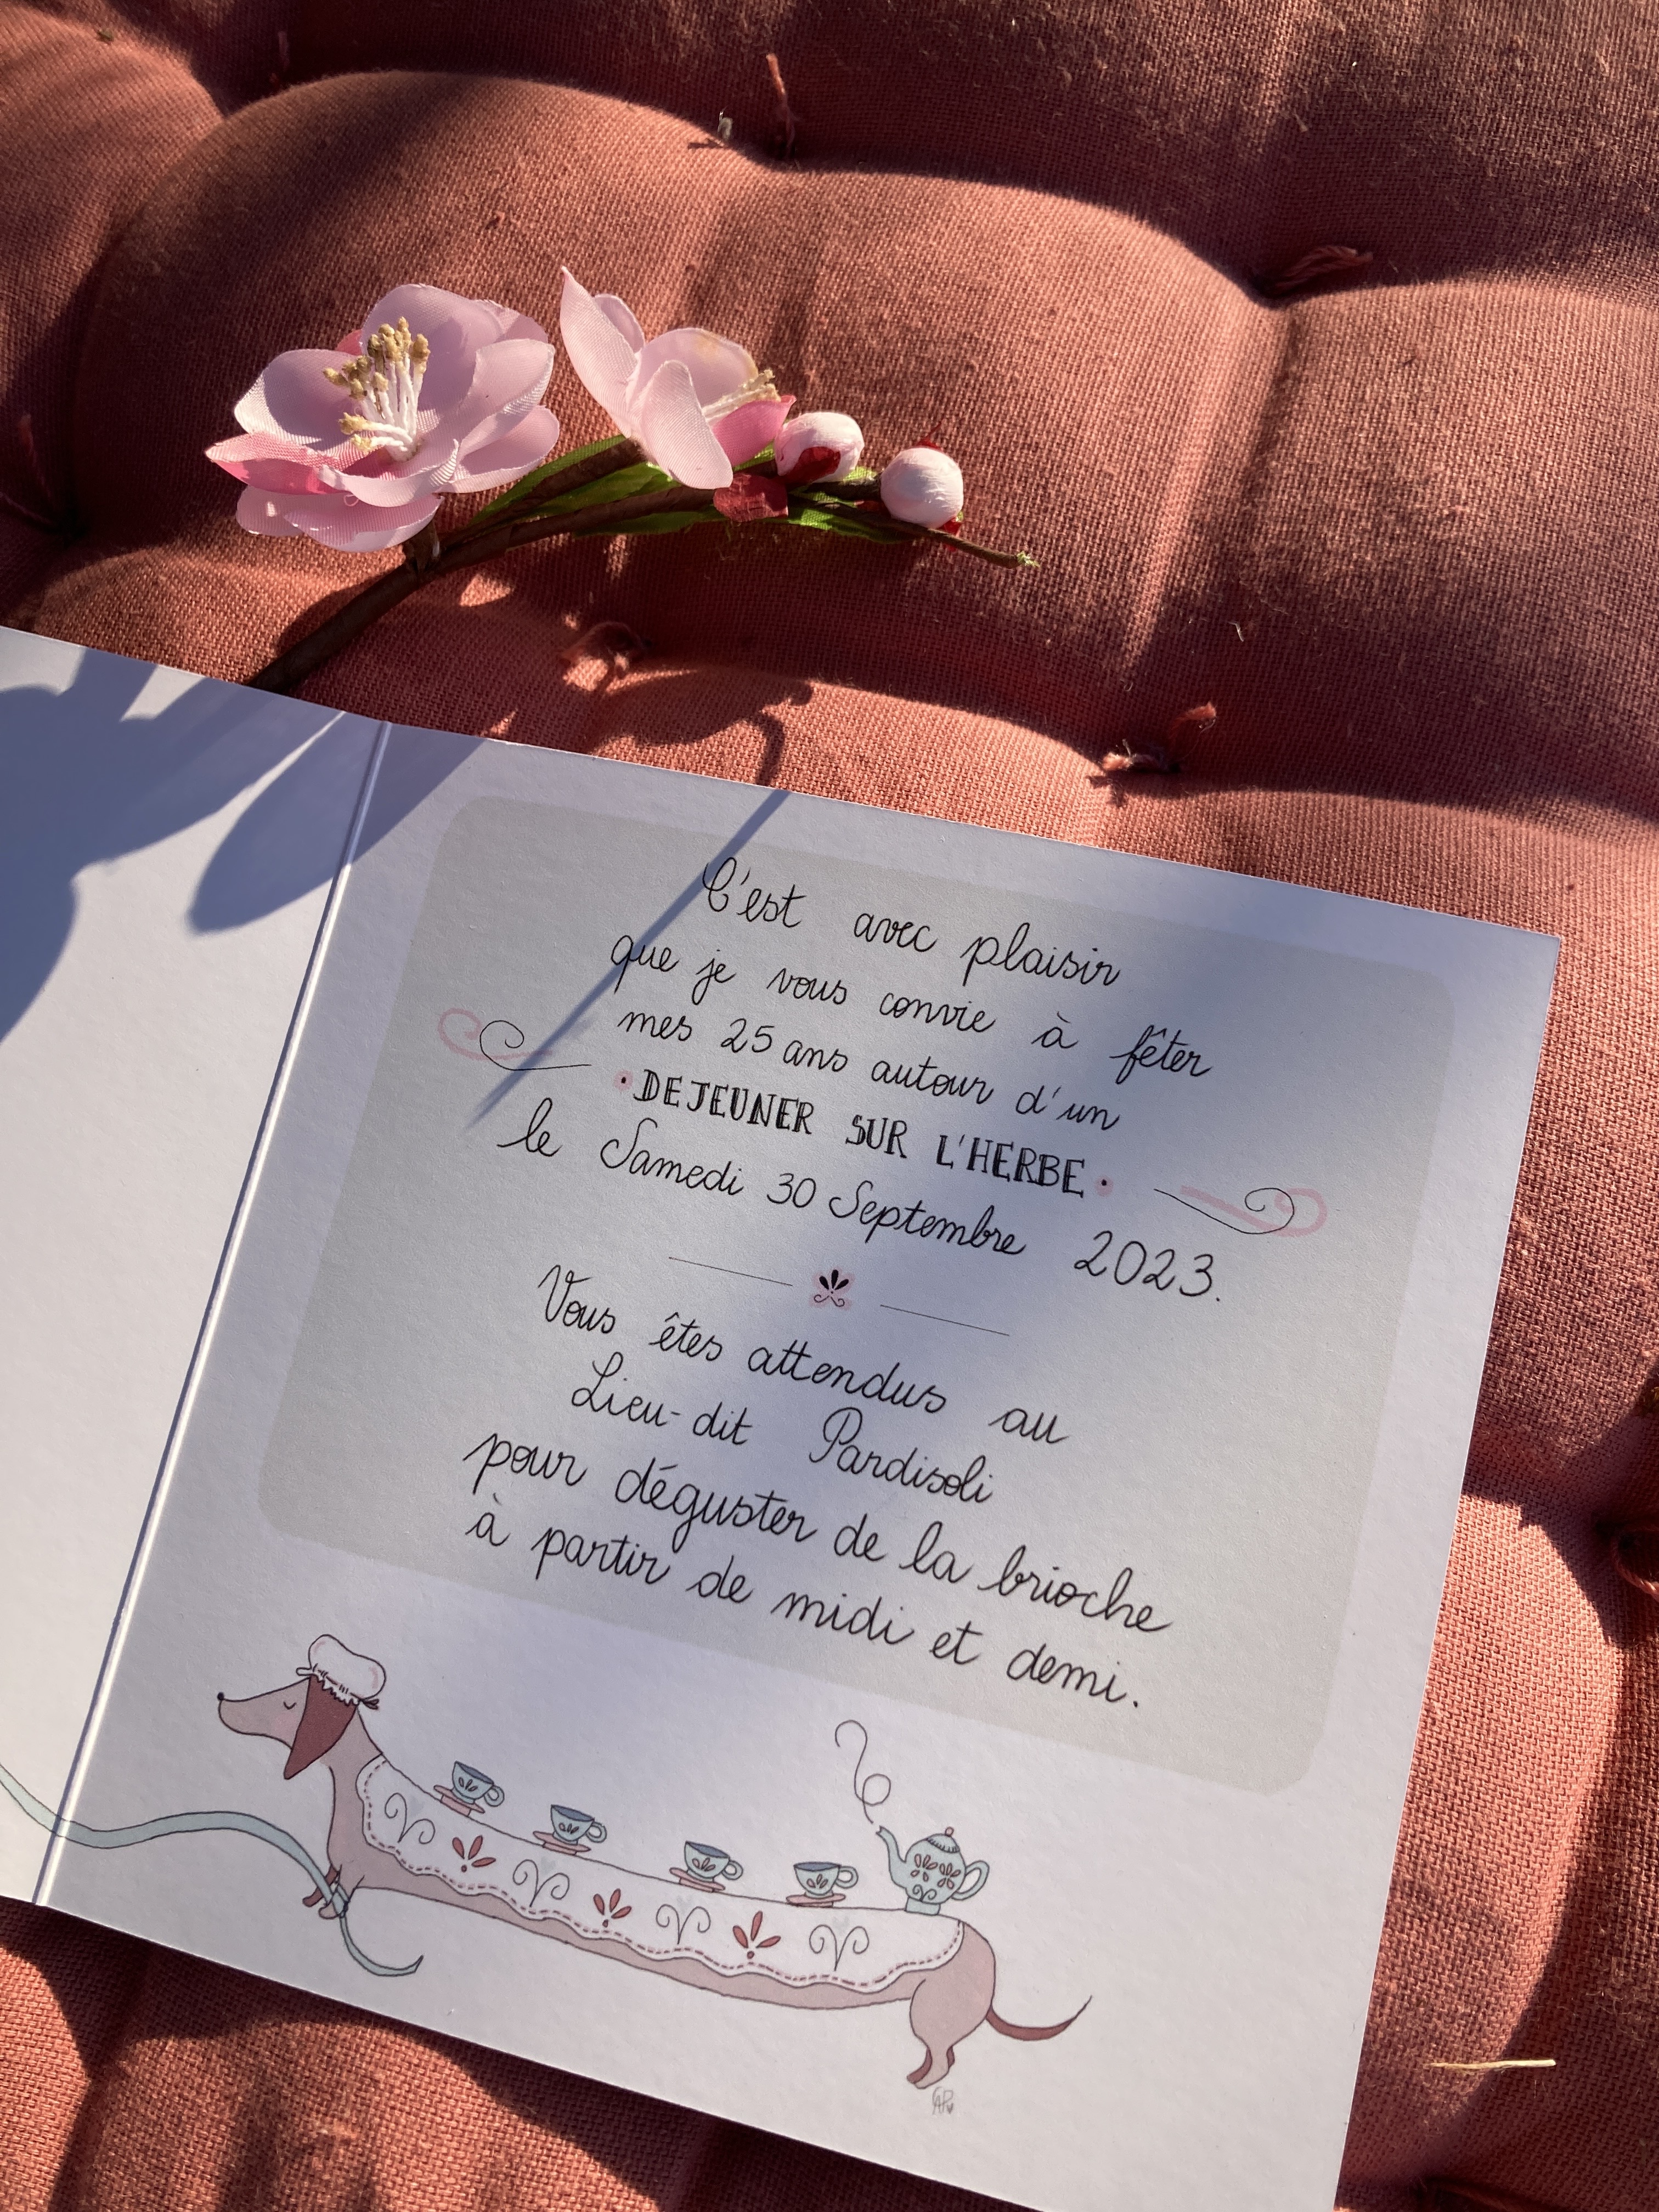 C'est avec plaisir
que je vous convie à fêter
mes 25 ans autour d'un
• DEJEUNER SUR L'HERBE •
le Samedi 30 Septembre 2023.
Vous êtes attendus au
Lieu-dit Pardisoli
pour déguster de la brioche
à partir de midi et demi.